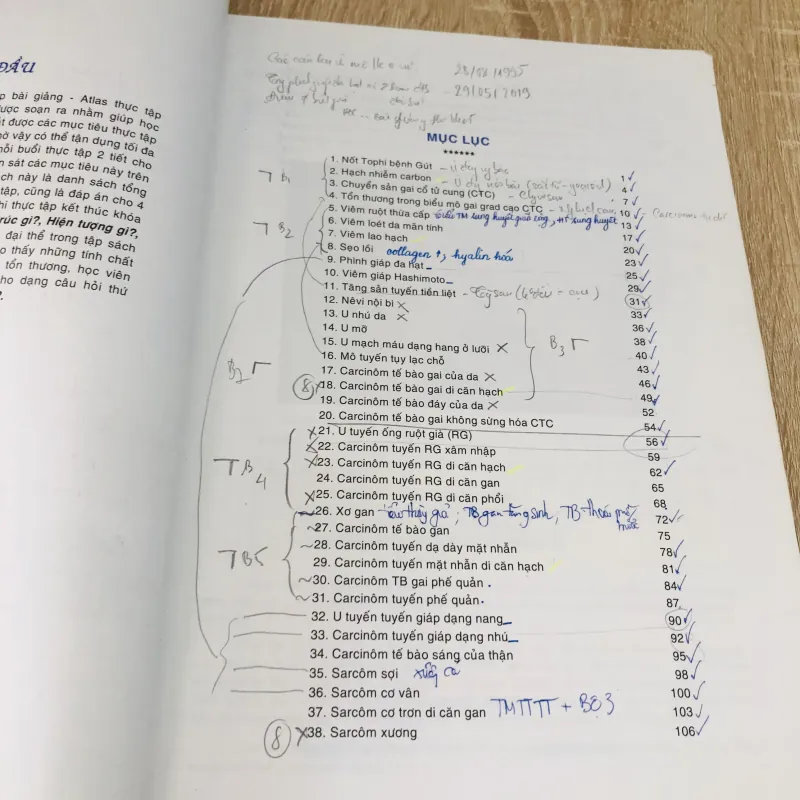 ĐẦU
p bài giảng - Atlas thực tập
ược soạn ra nhằm giúp học
t được các mục tiêu thực tập
hờ vậy có thể tận dụng tối đa
nỗi buổi thực tập 2 tiết cho
n sát các mục tiêu này trên
ch này là danh sách tổng
tập, cũng là đáp án cho 4
hi thực tập kết thúc khóa
rúc gì?, Hiện tượng gì?,
đại thể trong tập sách
o thấy những tính chất
tổn thương, học viên
ho dạng câu hỏi thứ
29/05/2019
MỤC LỤC
******
1. Nốt Tophi bệnh Gút 1
2. Hạch nhiễm carbon 4
3. Chuyển sản gai cổ tử cung (CTC) 7
4. Tổn thương trong biểu mô gai grad cao CTC 10
5. Viêm ruột thừa cấp 13
6. Viêm loét da mãn tính 17
7. Viêm lao hạch 20
8. Sẹo lồi collagen ↑, hyalin hóa 23
9. Phình giáp đa hạt 25
10. Viêm giáp Hashimoto 29
11. Tăng sản tuyến tiền liệt 31
12. Nêvi nội bì 33
13. U nhú da 36
14. U mỡ 38
15. U mạch máu dạng hang ở lưỡi 40
16. Mô tuyến tụy lạc chỗ 43
17. Carcinôm tế bào gai của da 46
18. Carcinôm tế bào gai di căn hạch 49
19. Carcinôm tế bào đáy của da 52
20. Carcinôm tế bào gai không sừng hóa CTC 54
21. U tuyến ống ruột già (RG) 56
22. Carcinôm tuyến RG xâm nhập 59
23. Carcinôm tuyến RG di căn hạch 62
24. Carcinôm tuyến RG di căn gan 65
25. Carcinôm tuyến RG di căn phổi 68
26. Xơ gan 72
27. Carcinôm tế bào gan 75
28. Carcinôm tuyến dạ dày mặt nhẫn 78
29. Carcinôm tuyến mặt nhẫn di căn hạch 81
30. Carcinôm TB gai phế quản 84
31. Carcinôm tuyến phế quản 87
32. U tuyến tuyến giáp dạng nang 90
33. Carcinôm tuyến giáp dạng nhú 92
34. Carcinôm tế bào sáng của thận 95
35. Sarcôm sợi xương cá 98
36. Sarcôm cơ vân 100
37. Sarcôm cơ trơn di căn gan 103
38. Sarcôm xương 106
B2
B3
8
B4
B5
8